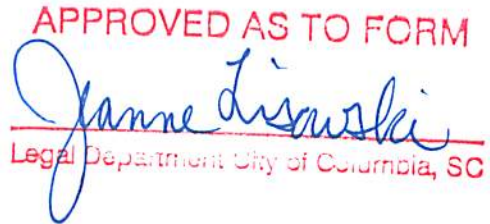 APPROVED AS TO FORM
Jeanne Lisowski
Legal Department City of Columbia, SC